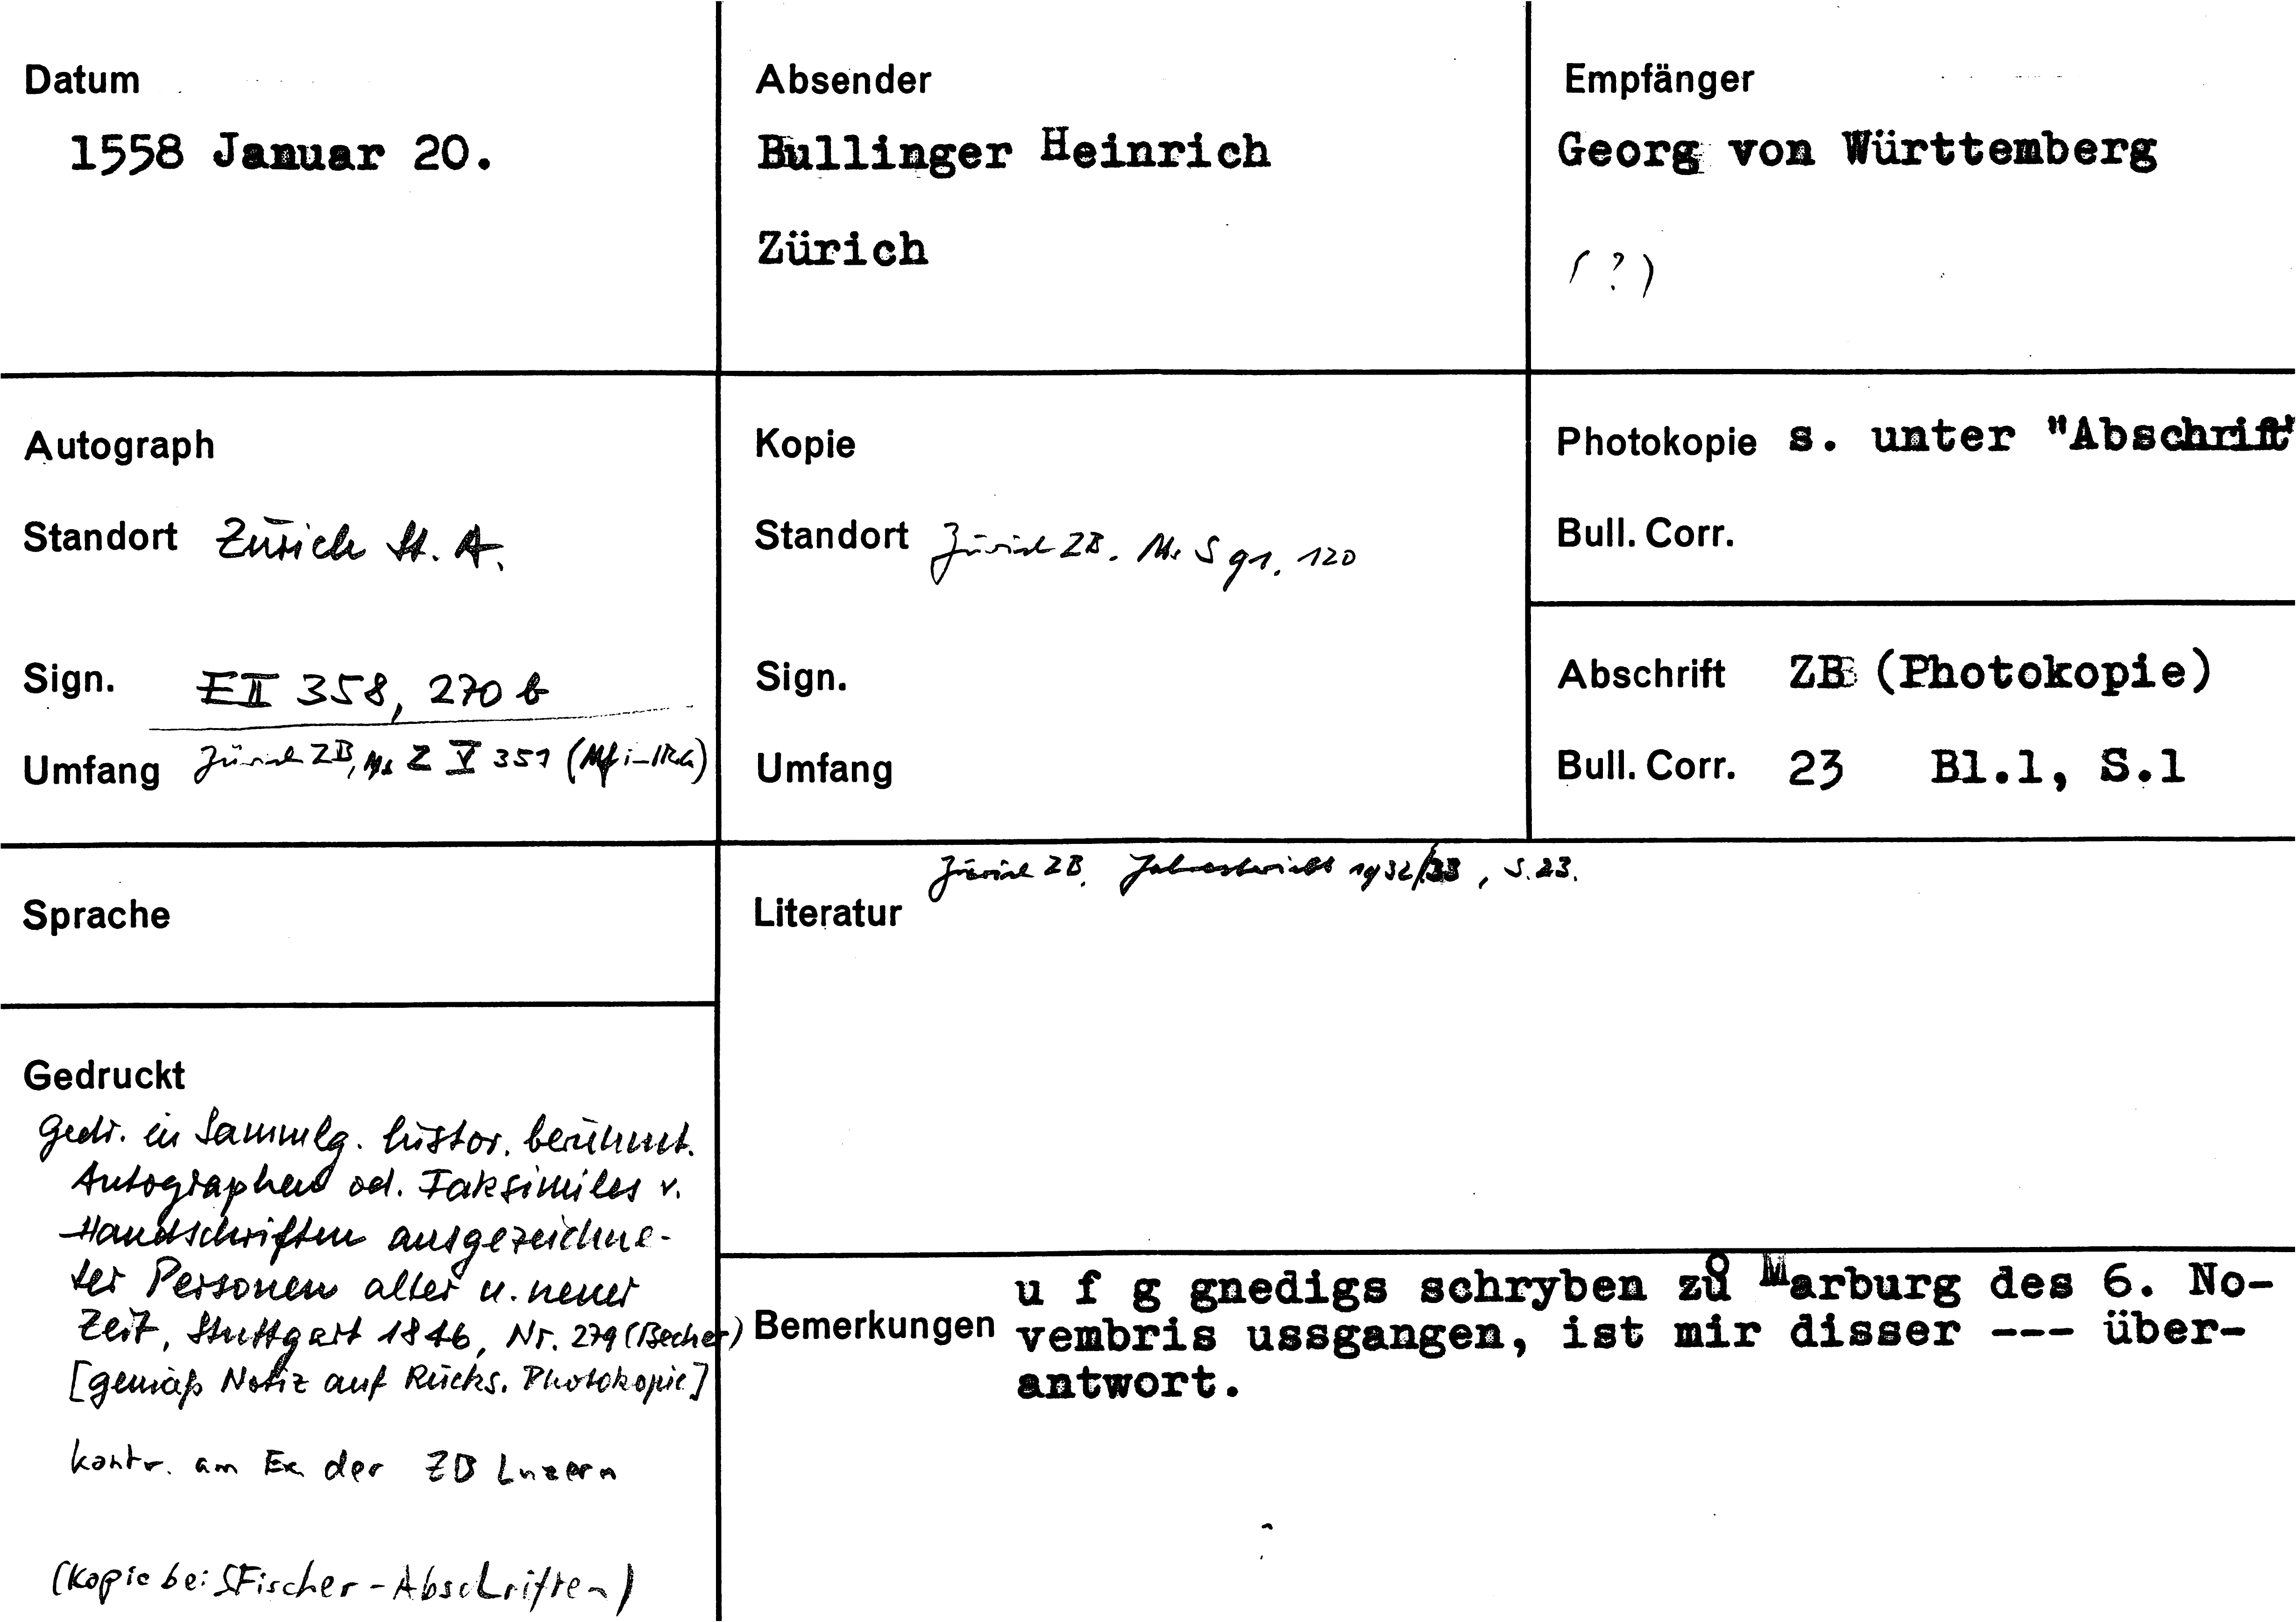 Datum
1558 Januar 20.
Absender
Bullinger Heinrich
Zürich
Empfänger
Georg von Württemberg
(?)
Autograph
Standort Zürich St. A.
Sign. E II 358, 270 b
Umfang Zürich ZB, Ms Z V 351 (Mf i-IRG)
Kopie
Standort Zürich ZB. Ms S gr. 120
Sign.
Umfang
Photokopie s. unter "Abschrift"
Bull. Corr.
Abschrift ZB (Photokopie)
Bull. Corr. 23 Bl.1, S.1
Sprache
Zürich ZB. Jahresbericht 1932/33, S.23.
Literatur
Gedruckt
Gedr. in Sammlg. histor. berühmt.
Autographen od. Faksimiles v.
Handschriften ausgezeichne-
ter Personen alter u. neuer
Zeit, Stuttgart 1846, Nr. 279 (Becher)
[gemäß Notiz auf Rücks. Photokopie]
kontr. am Ex der ZB Luzern
(Kopie bei Fischer-Abschriften)
Bemerkungen
u f g gnedigs schryben zů Marburg des 6. No-
vembris ussgangen, ist mir disser --- über-
antwort.